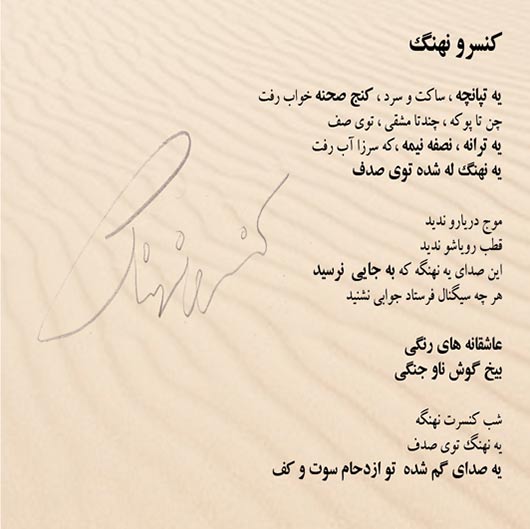 کنسرو نهنگ
یه تپانچه ، ساکت و سرد ، کنج صحنه خواب رفت
چن تا پوکه ، چندتا مشقی ، توی صف
یه ترانه ، نصفه نیمه ،که سرزا آب رفت
یه نهنگ له شده توی صدف
موج دریارو ندید
قطب رویاشو ندید
این صدای یه نهنگه که به جایی نرسید
هر چه سیگنال فرستاد جوابی نشنید
عاشقانه های رنگی
بیخ گوش ناو جنگی
شب کنسرت نهنگه
یه نهنگ توی صدف
یه صدای گم شده تو ازدحام سوت و کف
کنسرو نهنگ